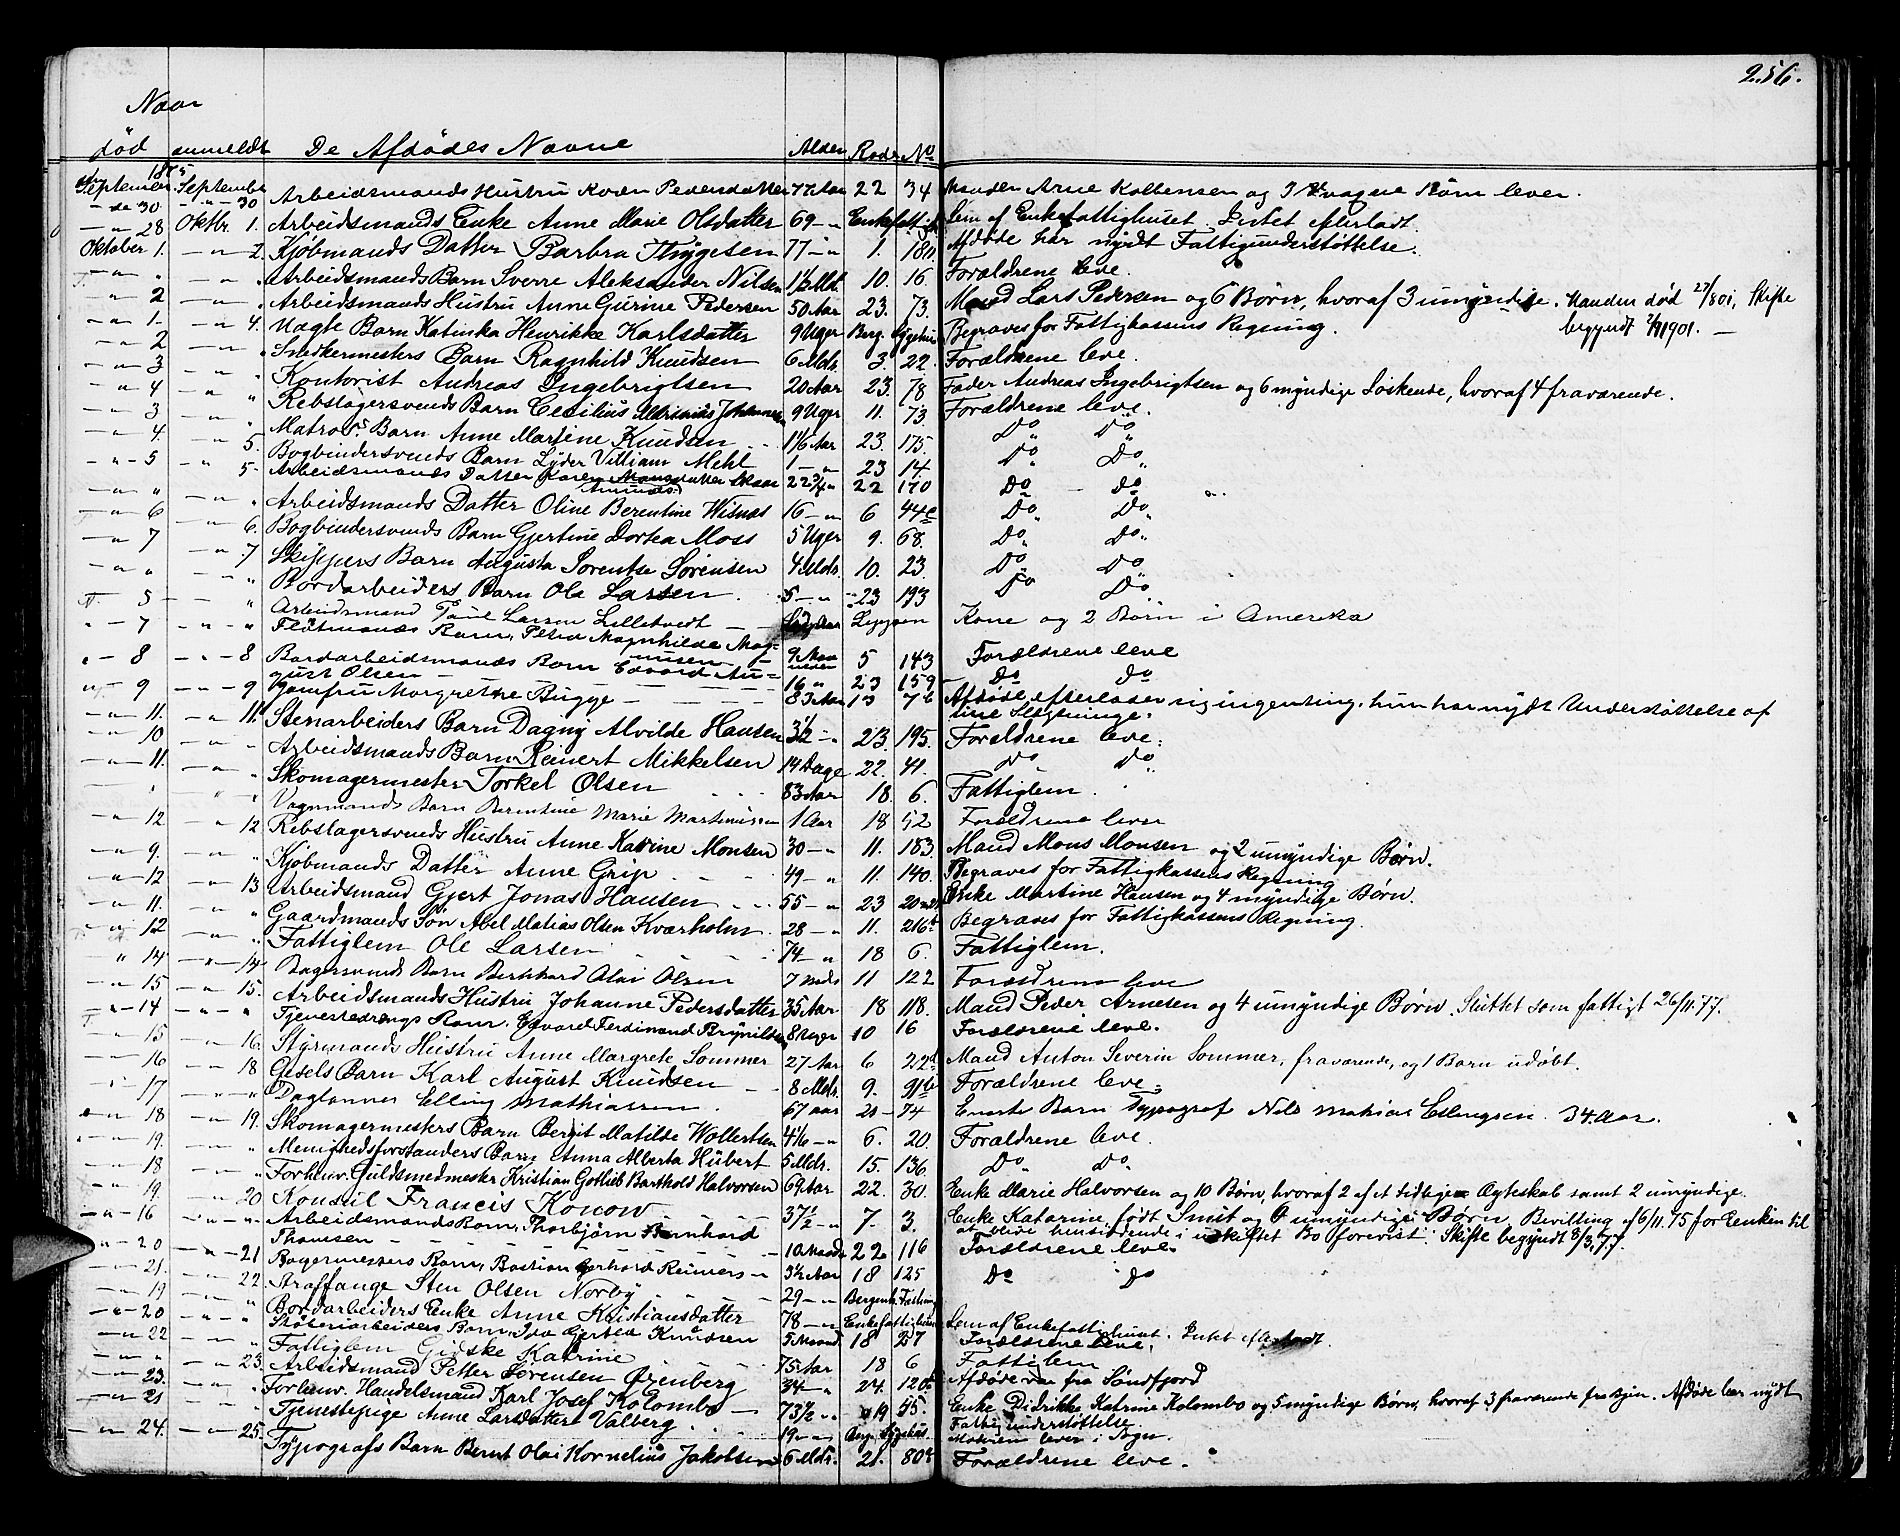 256.
Naar
død anmeldt De Afdødes Navne Alder Rode No
1875
September September Arbeidsmands Hustru Pedersdatter 77 Aar 22 34 Manden Arne Kolbensen og 3 Børn lever.
30 30
28 Oktbr. 1. Arbeidsmands Enke Anne Marie Olsdatter 69 Lem af Enkefattighuset. Intet efterladt.
Oktober 1. 2. Kjøbmands Datter Barbra Thygesen 77 1. Afdøde har nydt Fattigunderstøttelse.
Arbeidsmands Barn Sverre Aleksander Nilsen 1½ Md. 10. 16. Forældrene leve.
2 Arbeidsmands Hustru Anne Gurine Pedersen 50 Aar 23. 73. Mand Lars Pedersen og 6 Børn, hvoraf 3 umyndige. Manden død Skifte
begyndt 1901.
1. 4. Uægte Barn Katinka Henrikke Karlsdatter 9 Uger Berg. Sygehus Begraves for Fattigkassens Regning.
2 Snedkermesters Barn Ragnhild Knudsen 6 Mdr. 3. 22. Forældrene leve.
3 Kontorist Andreas Ingebrigtsen 20 Aar 23. 78 Fader Andreas Ingebrigtsen og 6 myndige Søskende, hvoraf 4 fraværende.
4 Rebslagersvends Barn Cecilius Johannesen 9 Uger 11. 73. Forældrene leve.
3 Matros. Barn Anne Martine Knudsen 1 1/6 Aar 23. 175. Do Do
4. 5. Bogbindersvends Barn Lyder Villiam Mehl 1 23 14. Do Do
5 5. Arbeidsmands Datter Karen 22 ¾ 22 170 Do do
Arbeidsmands Datter Oline Berentine Wisnæs 16 6 44e Do Do
6 6. Bogbindersvends Barn Gjertine Dortea Moss 5 Uger 9. 68. Do Do
7 7 Skippers Barn Augusta Sorentse Sørensen 4 Mdr. 10. 23. Do Do
Bordarbeiders Barn Ole Larsen 5 23 193 Do Do
5 Arbeidsmand Larsen Lilletvedt Kone og 2 Børn i Amerika
7 Fløtmands Barn, Petra Magnhilde Mag-
nusen 9 Maaneder 5 143 Forældrene leve
8 8 Bordarbeidsmands Barn Edvard Au-
gust Olsen 16 23 159 Do do
9 9 Jomfru Margrethe Bugge 83 Aar 13 Afdøde efterlader sig ingenting, hun har nydt Understøttelse af
sine Slægtninge.
11. 11. Stenarbeiders Barn Dagny Alvilde Hansen 3½ 23. 195. Forældrene leve.
10 Arbeidsmands Barn Reinert Mikkelsen 14 Dage 22. 41. Do Do
11. Skomagermester Torkel Olsen 83 Aar 18. 6. Fattiglem.
Vognmands Barn Berentine Marie Martinussen 1 Aar 18 52 Forældrene lever
12 12 Rebslagersvends Hustru Anne Katrine Monsen 30 11. 183. Mand Mons Monsen og 2 umyndige Børn.
9. Kjøbmands Datter Anne Grip 49 11. 140. Begraves for Fattigkassens Regning
12 13 Arbeidsmand Gjert Jonas Hansen 55 23 Enke Martine Hansen og 4 myndige Børn.
11. Gaardmands Søn Abel Matias Olsen Kvarholm 28 11. 216b Begraves for Fattigkassens Regning.
12 Fattiglem Ole Larsen 74 18 6. Fattiglem.
14 14 Bagersvends Barn Bernhard Olai Olsen 7 Mdr 11 122 Forældrene leve
15 15. Arbeidsmands Hustru Johanne Pedersdatter 35 Aar 18 118. Mand Peder Arnesen og 4 umyndige Børn. Sluttet som fattigt 26/11.77.
14 Tjenestedrengs Barn, Edvard Ferdinand Brynildsen 8 Uger 10 16 Forældrene leve.
15 16. Styrmands Hustru Anne Margrete Sommer 27 Aar 6 22d Mand Anton Severin Sommer, fraværende, og 1 Barn udøbt.
16 18 Gjesels Barn Karl August Knudsen 8 Mdr. 9. 91b Forældrene leve.
17 Daglønner Elling Mathiassen 67 aar 21 74 Eneste Barn Typograf Nils Mathias Ellingsen. 34 Aar.
18 19. Skomagermesters Barn Bergit Matilde Wollertsen 4 1/6 6. 20. Forældrene leve.
19. Menighedsforstanders Barn Anna Alberta Hubert 5 Mdr. 15. 136 Do Do.
18 Forhenv. Guldsmedmester Kristian Gotlieb Barthold Halvorsen 69 Aar 22. 30. Enke Marie Halvorsen og 10 Børn, hvoraf 2 af et tidligere Ægteskab samt 2 umyndige.
19. 20 Konsul Francis Konow 37½ 7. 3. Enke Katarine født Smit og umyndige Børn. Bevilling af 6/11.75 for Enken til
at blive hensiddende i uskiftet Bo forevist. Skifte begyndt 8/3.77.
16 Arbeidsmands Barn, Thorbjørn Bernhard
Thomsen 10 Maaneder 22 116 Forældrene leve.
20 21 Bagermesters Barn, Bastian Gerhard Reimers 3½ Aar 18 125 Do Do
21. 22. Straffange Sten Olsen Norby 29 Bergenh. Fæstning
19 Bordarbeiders Enke Anne Kristiansdatter 78 Enkefattighuset Lem af Enkefattighuset. Intet efterladt.
20 Støberiarbeiders Barn, Ida Gjertea Knudsen 5 Maaneder 18 27 Forældrene leve.
22 Fattiglem Gidske Katrine 75 Aar 18 6 Fattiglem
23. Arbeidsmand Petter Sørensen Ørenberg 34 24. 120 Afdøde var fra Søndfjord
23. Forhenv. Handelsmand Karl Josef Kolombo 73½ 19 55. Enke Didrikke Katrine Kolombo og 5 myndige Børn, hvoraf 3 fraværende fra Byen. Afdøde har nydt
Fattigunderstøttelse.
21 Tjenestepige Anne Larsdatter Valberg 19 Berg. Sygehus. Moderen lever i Sogn.
24. 25. Typografs Barn Bernt Olai Kornelius Jakobsen 6 Mdr. 21. 80 Forældrene leve.